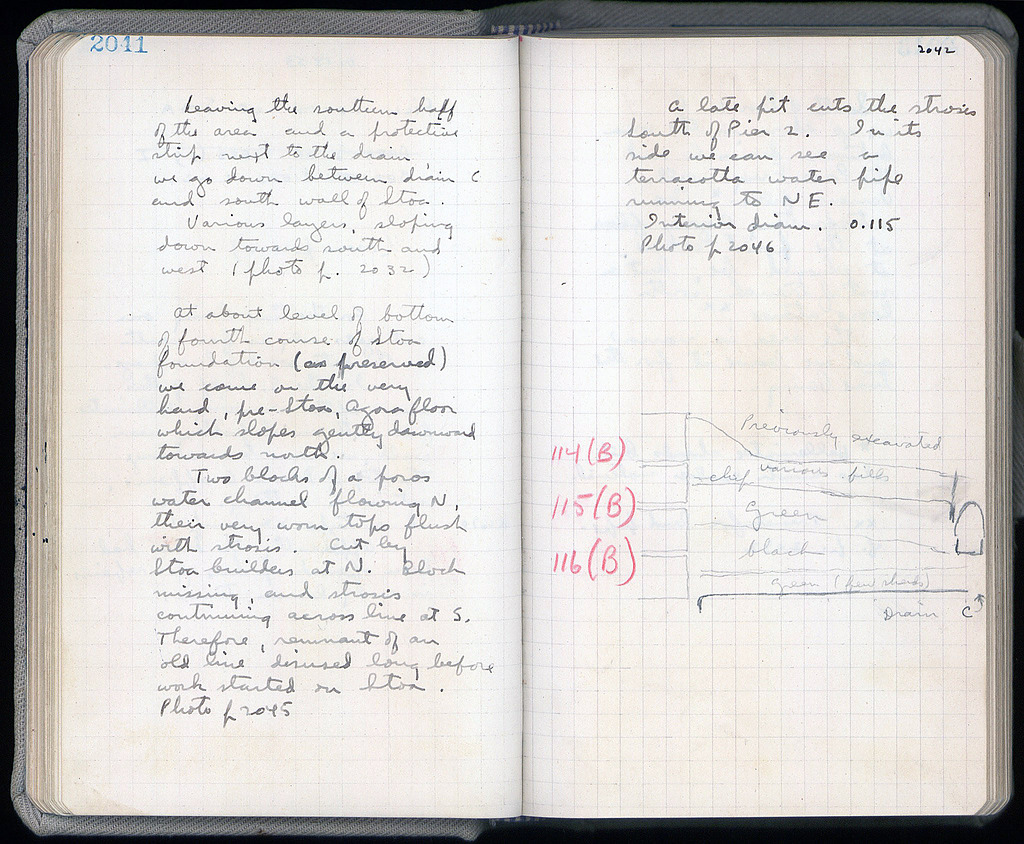 2041
Leaving the southern half
of the area and a protective
strip next to the drain,
we go down between drain C
and south wall of Stoa.
Various layers, sloping
down towards south and
west (photo p. 2032)
At about level of bottom
of fourth course of Stoa
foundation (as preserved)
we come on the very
hard, pre-Stoa, Agora floor
which slopes gently downward
towards north.
Two blocks of a poros
water channel flowing N,
their very worn tops flush
with strosis. Cut by
Stoa builders at N. Block
missing, and strosis
continuing across line at S.
Therefore, remnant of an
old line, disused long before
work started on Stoa.
Photo p 2045
2042
A late pit cuts the strosis
South of Pier 2. In its
side we can see a
terracotta water pipe
running to NE.
Interior diam. 0.115
Photo p 2046
Previously excavated
114(B)
various fills
chip
115(B)
Green
116(B)
black
green (few sherds)
Drain C